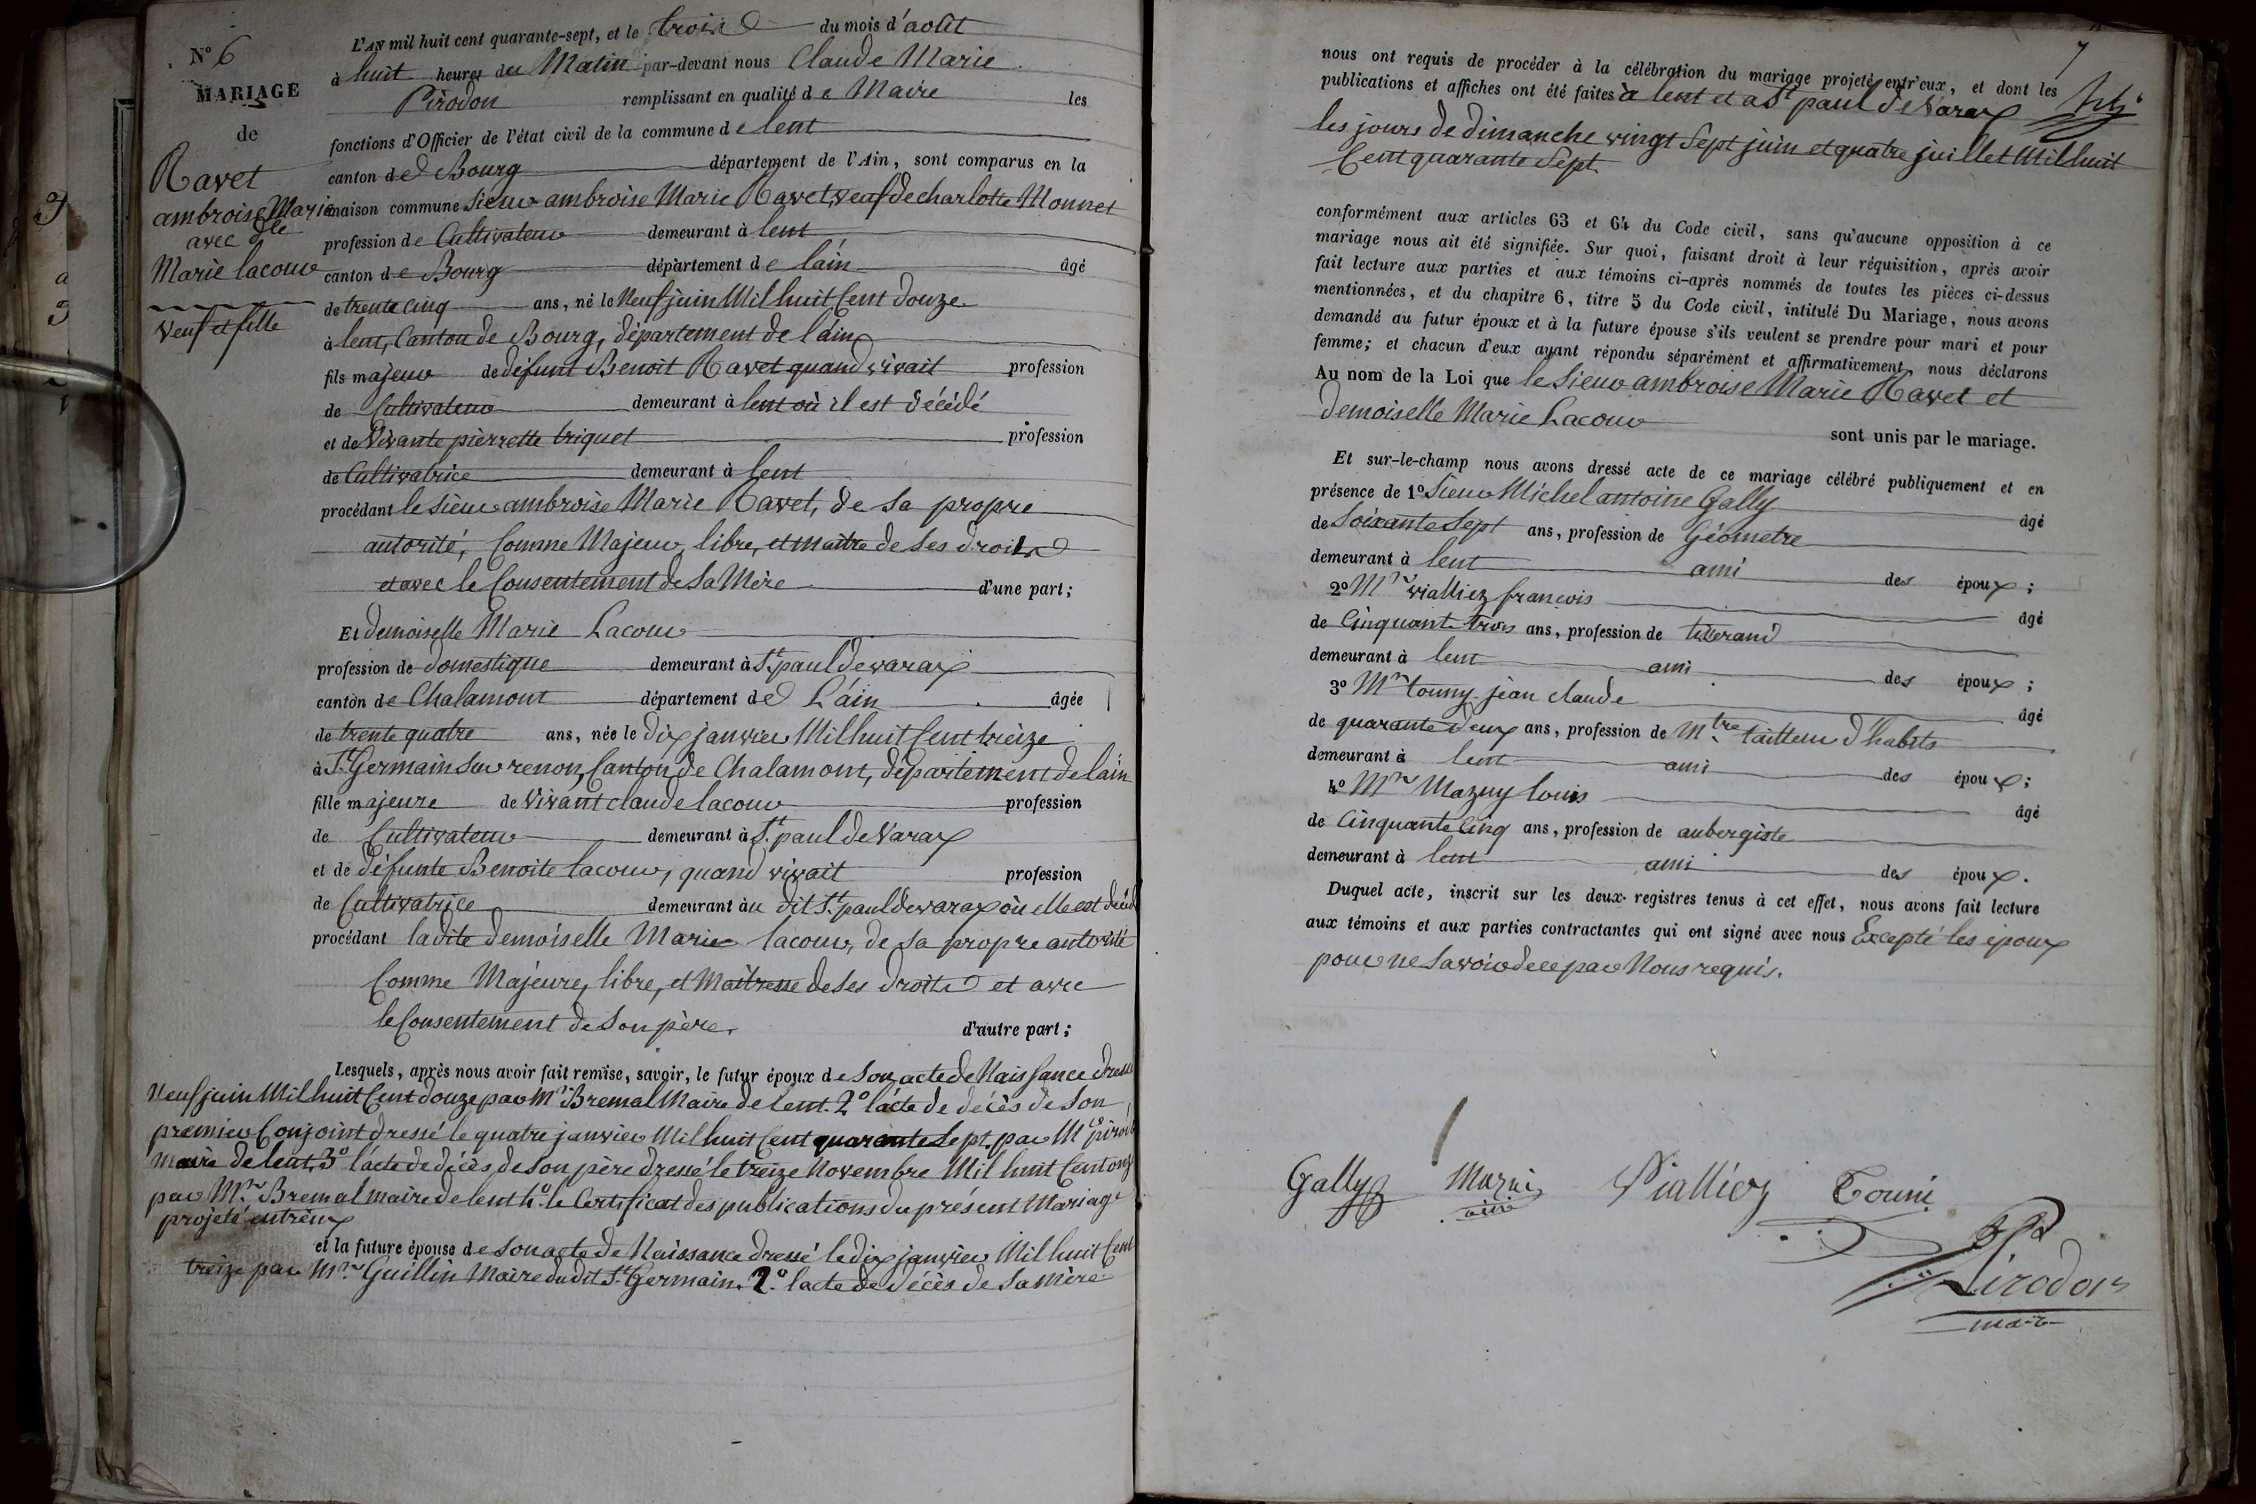 N.º 6
MARIAGE
de
Ravet
ambroise Marie
avec dlle
Marie lacour
veuf et fille
L'AN mil huit cent quarante-sept, et le trois du mois d'août
à huit heures du Matin par-devant nous Claude Marie
Pirodon remplissant en qualité de Maire les
fonctions d'Officier de l'état civil de la commune de lent
canton de Bourg département de l'Ain, sont comparus en la
maison commune Sieur ambroise Marie Ravet, veuf de charlotte Monnet
profession de Cultivateur demeurant à lent
canton de Bourg département de láin âgé
de trente cinq ans, né le Neuf juin Mil huit Cent douze
à lent, Canton de Bourg, département de láin
fils majeur de défunt Benoit Ravet quand vivait profession
de Cultivateur demeurant à lent où il est décédé
et de Vivante pierrette triquet profession
de Cultivatrice demeurant à lent
procédant le sieur ambroise Marie Ravet, de sa propre
autorité, Comme Majeur, libre, et maitre de ses droits
et avec le Consentement de sa Mère d'une part;
Et demoiselle Marie Lacour
profession de domestique demeurant à St. paul de varax
canton de Chalamont département de L'áin âgée
de trente quatre ans, née le dix janvier Mil huit Cent treize
à St. Germain sur renon, Canton de Chalamont, département de lain
fille majeure de Vivant claude lacour profession
de Cultivateur demeurant à St. paul de Varax
et de défunte Benoite lacour, quand vivait profession
de Cultivatrice demeurant au dit St. paul de varax où elle est décéd
procédant ladite demoiselle Marie lacour, de sa propre autorité
Comme Majeure, libre, et Maîtresse de ses droits et avec
le Consentement de son père. d'autre part;
Lesquels, après nous avoir fait remise, savoir, le futur époux de son acte de Naissance dressé
Neuf juin Mil huit Cent douze par Mr. Bremal Maire de lent. 2º lácte de décès de son
premier Conjoint dressé le quatre janvier Mil huit Cent quarante sept. par M
maire de lent, 3º lácte de décès de son père dressé le treize Novembre Mil huit Cent onze
par Mr. Bremal maire de lent 4º le Certificat des publications du présent Mariage
projeté entr'eux
et la future épouse de son acte de Naissance dressé le dix janvier Mil huit Cent
treize par Mr. Guillin Maire du dit St. Germain. 2.º lacte de décès de sa mère
7
nous ont requis de procéder à la célébration du mariage projeté entr'eux, et dont les
publications et affiches ont été faites à lent et a St paul de Varax
les jours de dimanche vingt sept juin et quatre juillet Mil huit
Cent quarante sept.
conformément aux articles 63 et 64 du Code civil, sans qu'aucune opposition à ce
mariage nous ait été signifiée. Sur quoi, faisant droit à leur réquisition, après avoir
fait lecture aux parties et aux témoins ci-après nommés de toutes les pièces ci-dessus
mentionnées, et du chapitre 6, titre 5 du Code civil, intitulé Du Mariage, nous avons
demandé au futur époux et à la future épouse s'ils veulent se prendre pour mari et pour
femme; et chacun d'eux ayant répondu séparément et affirmativement, nous déclarons
Au nom de la Loi que le Sieur ambroise Marie Ravet et
demoiselle Marie Lacour
sont unis par le mariage.
Et sur-le-champ nous avons dressé acte de ce mariage célébré publiquement et en
présence de 1º Sieur Michel antoine Gally âgé
de Soixante Sept ans, profession de Géometre
demeurant à lent ami des époux;
2º Mr vialliez francois âgé
de Cinquante trois ans, profession de tisserand
demeurant à lent ami des époux;
3º Mr touny jean claude âgé
de quarante deux ans, profession de Mtre tailleur d'habits
demeurant à lent ami des époux;
4º Mr Mazuy louis âgé
de Cinquante Cinq ans, profession de aubergiste
demeurant à lent ami des époux.
Duquel acte, inscrit sur les deux registres tenus à cet effet, nous avons fait lecture
aux témoins et aux parties contractantes qui ont signé avec nous Excepté les époux
pour ne Savoir de ce par Nous requis.
Gally Mazui Vialliez Touni
Pirodon